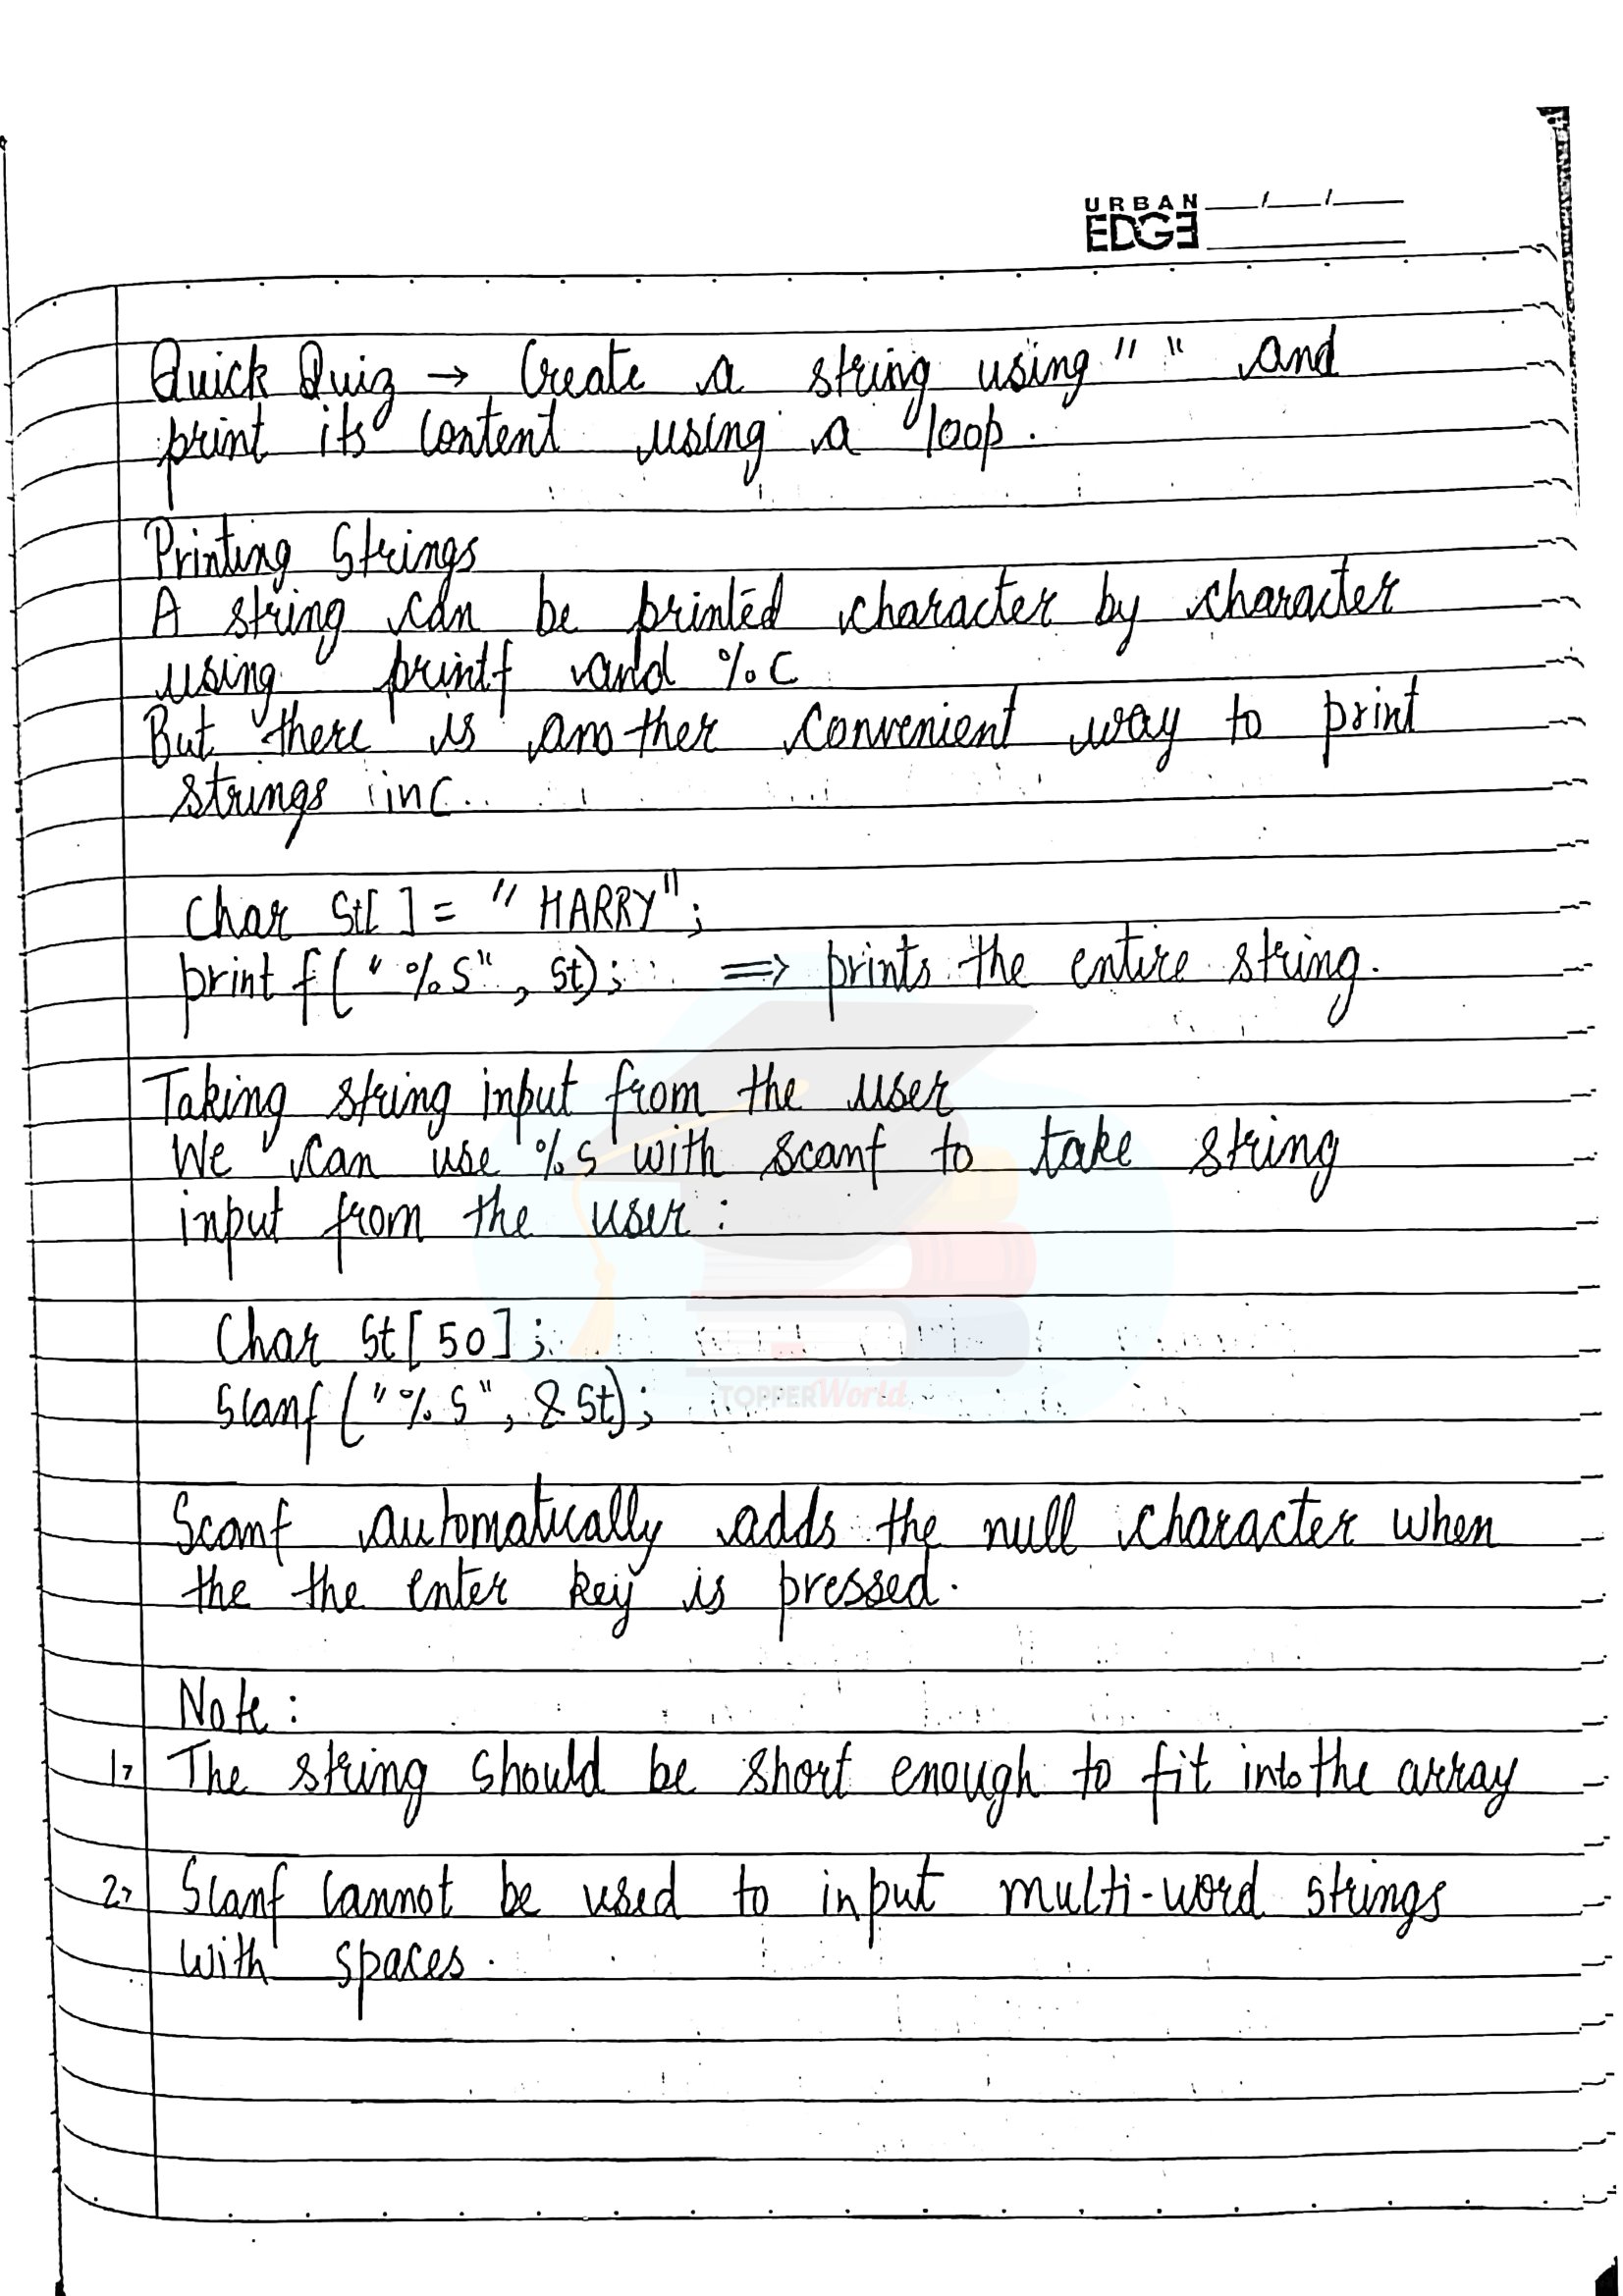 URBAN
EDGE
Quick Quiz → Create a string using " " and
print its content using a loop.
Printing Strings
A string can be printed character by character
using printf and %c
But there is another convenient way to print
strings in C.
Char St[ ] = "HARRY";
printf("%s", St); ⇒ prints the entire string.
Taking string input from the user
We can use %s with scanf to take string
input from the user:
Char St[50];
Scanf("%s", &St);
Scanf automatically adds the null character when
the the enter key is pressed.
Note:
1> The string should be short enough to fit into the array
2> Scanf cannot be used to input multi-word strings
with spaces.
TOPPERWorld